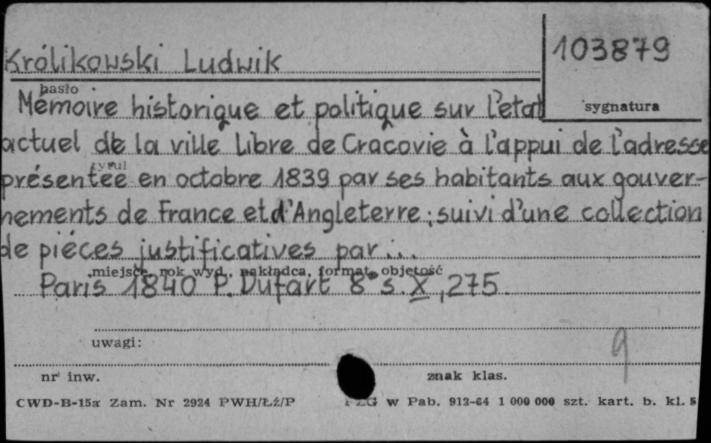 Królikowski Ludwik
103879
hasło
sygnatura
Mémoire historique et politique sur l'état
actuel de la ville libre de Cracovie à l'appui de l'adresse
tytuł
présentée en octobre 1839 par ses habitants aux gouver-
nements de France et d'Angleterre; suivi d'une collection
de piéces justificatives par...
miejsce, rok wyd., nakładca, format, objętość
Paris 1840 P. Dufart 8° s. X, 275.
uwagi:
9
nr inw.
znak klas.
CWD-B-15a Zam. Nr 2924 PWH/Łź/P
PZG w Pab. 912-64 1 000 000 szt. kart. b. kl. 5